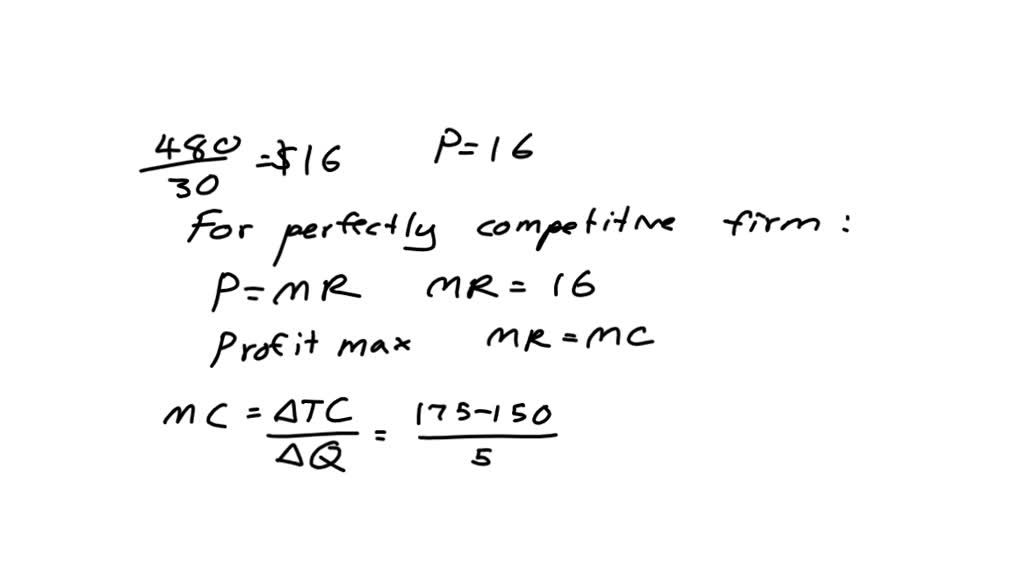 480/30 = $16 P = 16
For perfectly competitive firm :
P = MR MR = 16
Profit max MR = MC
MC = ΔTC/ΔQ = 175-150/5